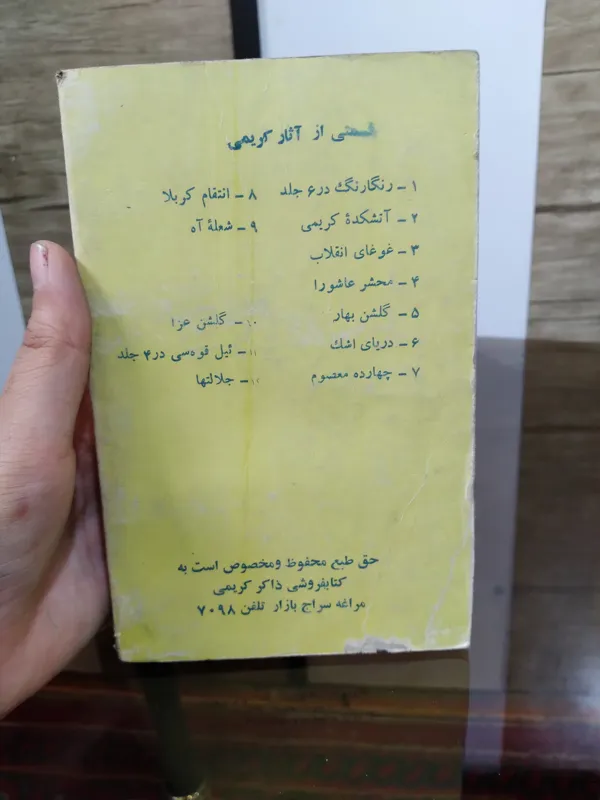 قسمتی از آثار کریمی
۱ - رنگارنگ در ۶ جلد
۲ - آتشکدهٔ کریمی
۳ - غوغای انقلاب
۴ - محشر عاشورا
۵ - گلشن بهار
۶ - دریای اشک
۷ - چهارده معصوم
۸ - انتقام کربلا
۹ - شعلهٔ آه
۱۰ - گلشن عزا
۱۱ - ئیل قوه‌سی در ۴ جلد
۱۲ - جلالتها
حق طبع محفوظ ومخصوص است به
کتابفروشی ذاکر کریمی
مراغه سراج بازار تلفن ۷۰۹۸